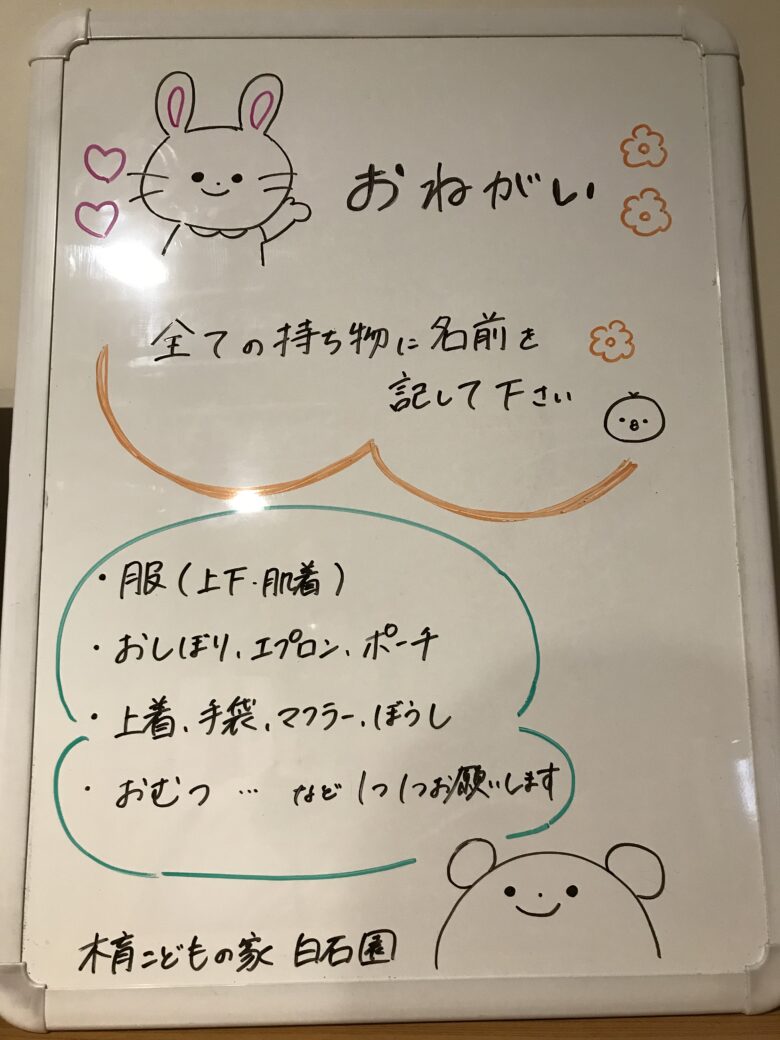 おねがい
全ての持ち物に名前を
記して下さい
・服(上下・肌着)
・おしぼり、エプロン、ポーチ
・上着、手袋、マフラー、ぼうし
・おむつ … など 1つ1つお願いします
木育こどもの家 白石園